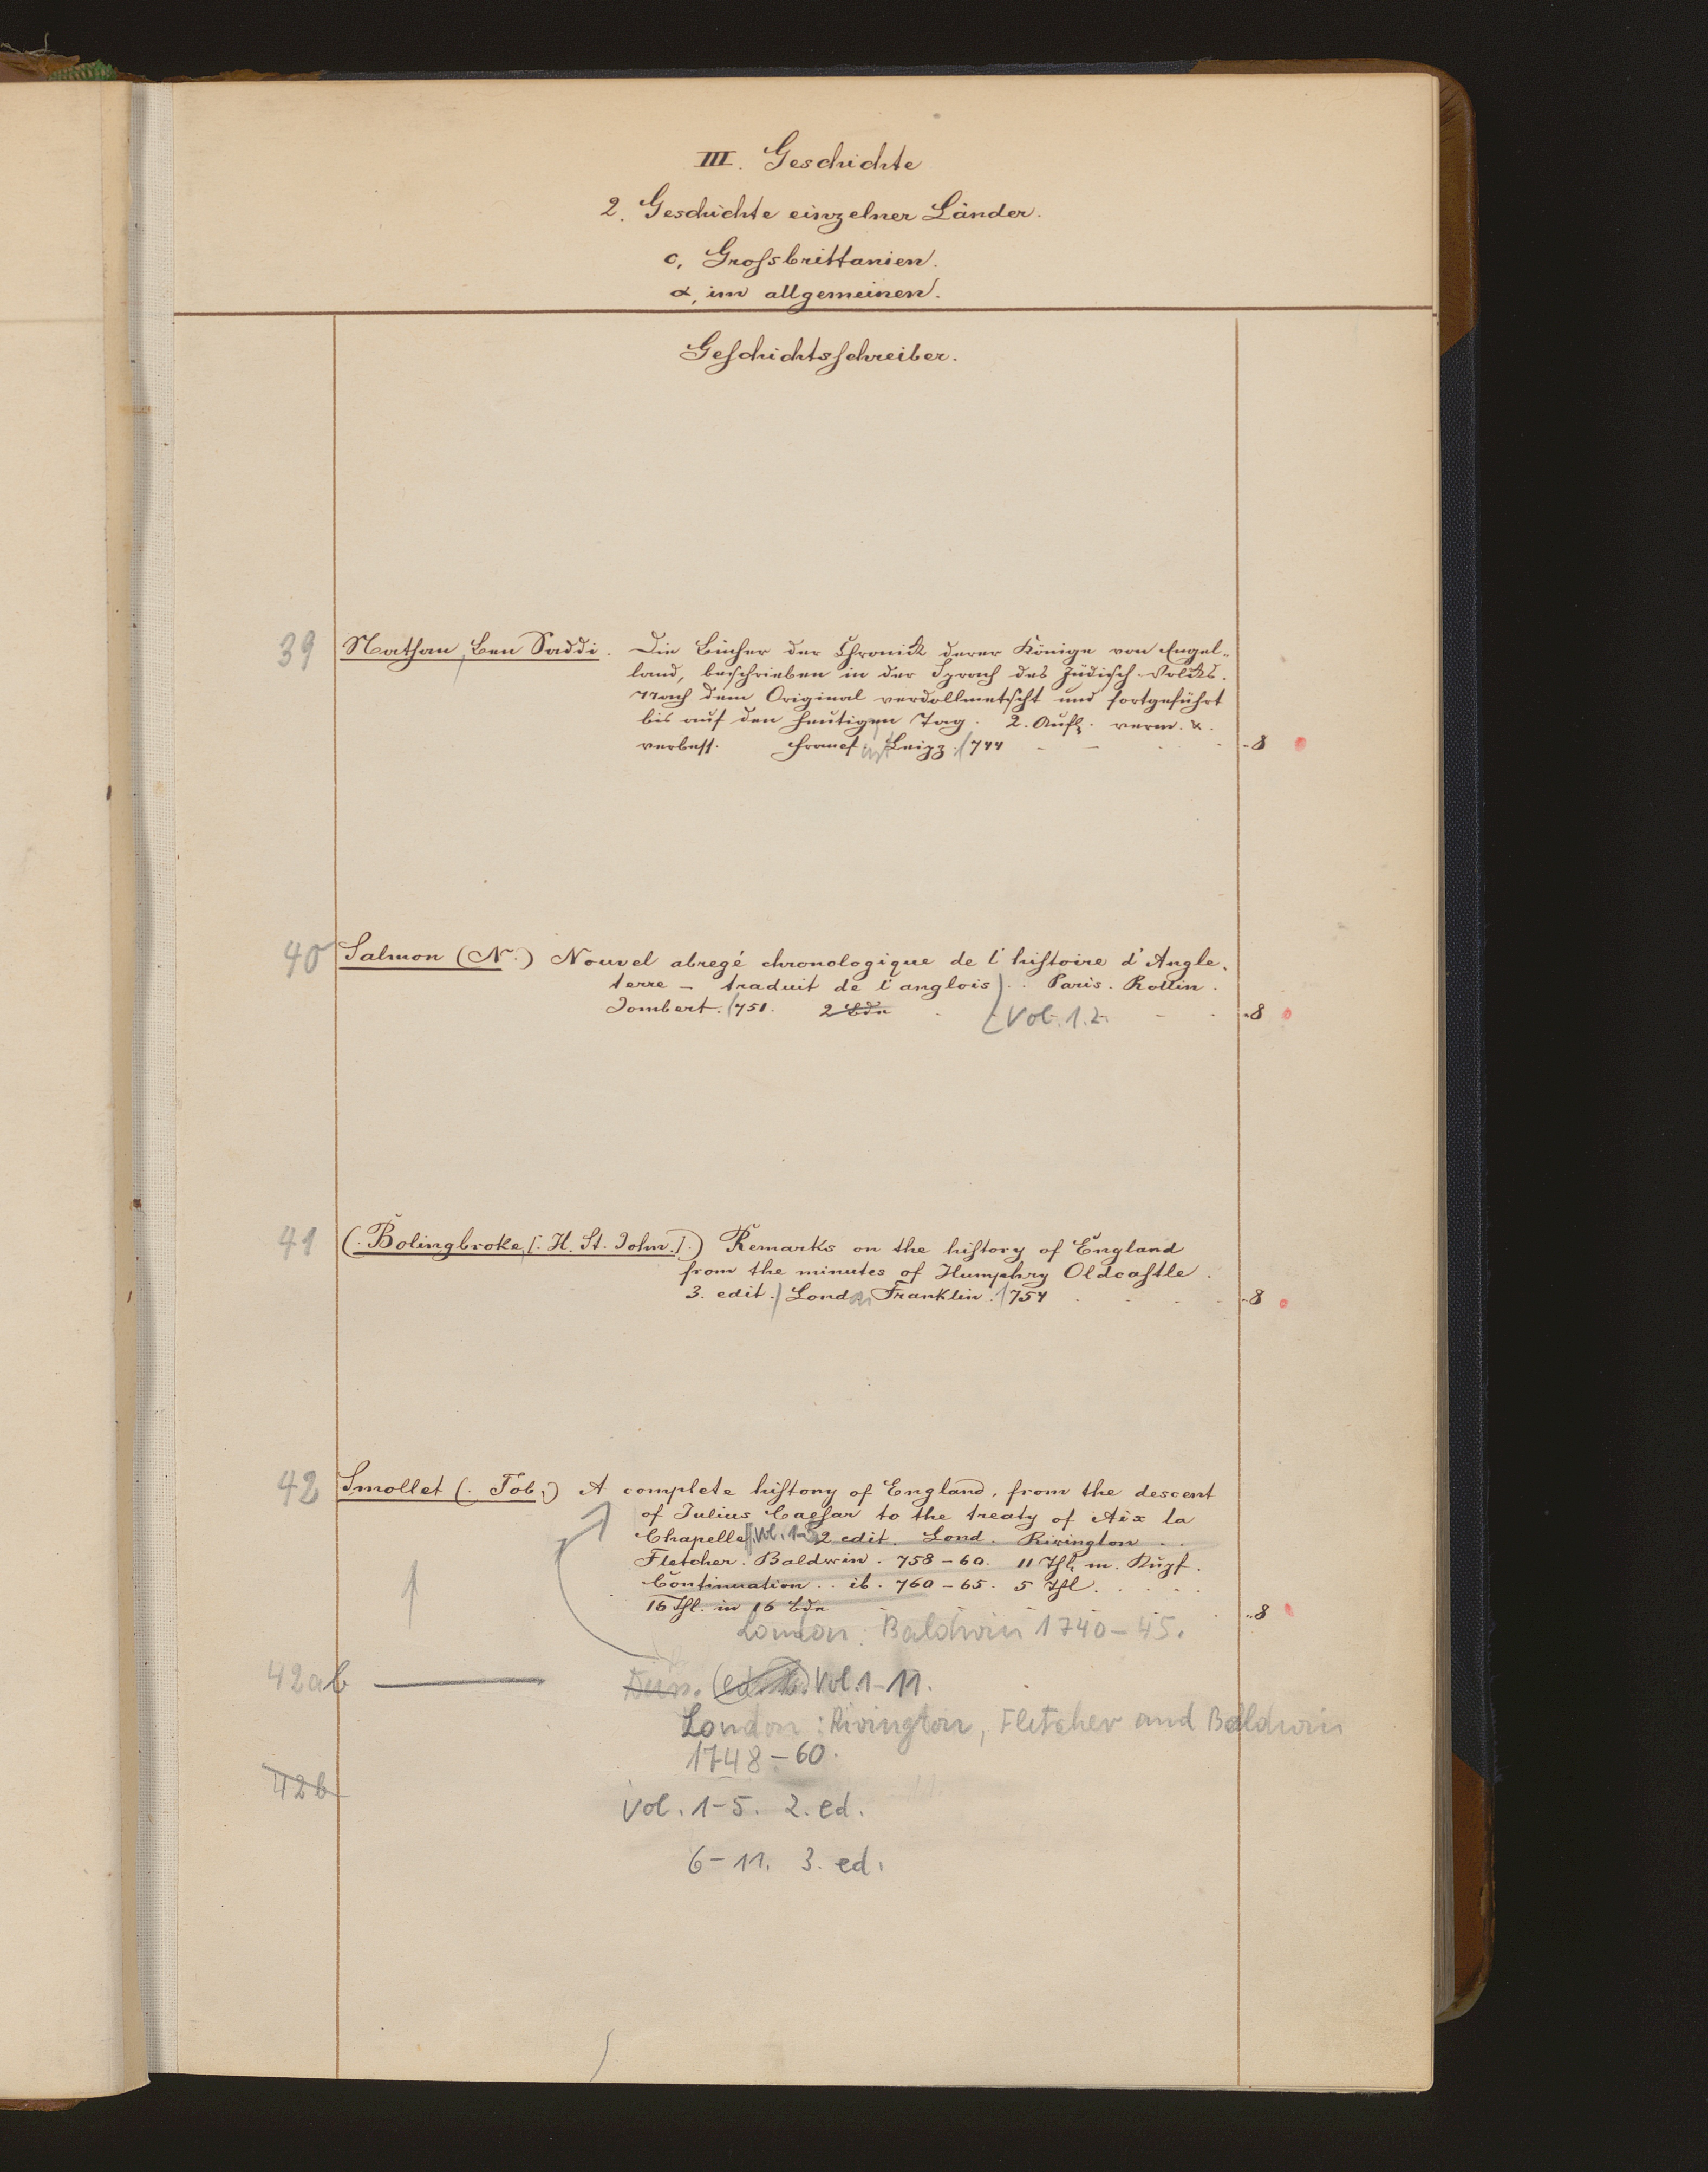 III. Geschichte
2. Geschichte einzelner Länder.
c, Großbrittanien.
α, im allgemeinen.
Geschichtsschreiber.
39 Nathan, Ben Saddi. Die Bücher der Chronick derer Könige von Engel-
land, beschrieben in der Sprach des Jüdisch Volcks.
Nach dem Original verdollmetscht und fortgeführt
bis auf den heutigen Tag. 2. Aufl. verm. &.
verbess. Francf Leipz. 744 8
40 Salmon (N.) Nouvel abregé chronologique de l'histoire d'Angle-
terre - traduit de l'anglois). Paris. Rollin.
Jombert. 751. 2 Bde [Vol. 1.2. 8
41 (Bolingbroke, [. H. St. John.]) Remarks on the history of England
from the minutes of Humphry Oldcastle.
3. edit.) Lond. Franklin. 754 8
42 Smollet (. Tob.) A complete history of England, from the descent
of Julius Caesar to the treaty of Aix la
Chapelle Vol. 1-5 2 edit. Lond. Rivington ..
Fletcher. Baldwin. 758-60. 11 Thl. m. Kupf.
Continuation .. ib. 760-65. 5 Thl.
16 Thl. in 16 Bde 8
London: Baldwin 1740-45.
42ab Vol. 1-11.
London: Rivington, Fletcher and Baldwin
1748-60.
42b
Vol. 1-5. 2. ed.
6-11. 3. ed.